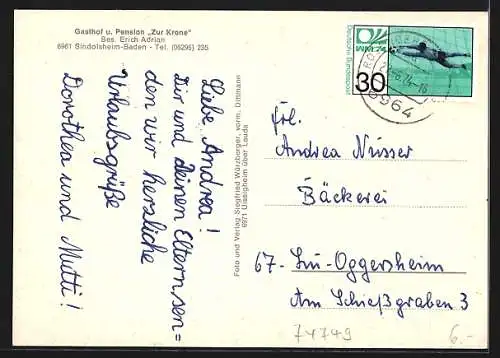 Gasthof u. Pension „Zur Krone"
Bes. Erich Adrian
6961 Sindolsheim-Baden - Tel. (06295) 235
Liebe Andrea!
Dir und Deinen Eltern sen=
den wir herzliche
Urlaubsgrüße
Dorothea und Mutti!
Foto und Verlag Siegfried Würzburger, vorm. Dittmann
6971 Uissigheim über Lauda
Deutsche Bundespost
WM 74
30
6964
Frl.
Andrea Nüsser
Bäckerei
67- Lu-Oggersheim
Am Schießgraben 3
74749
6.-